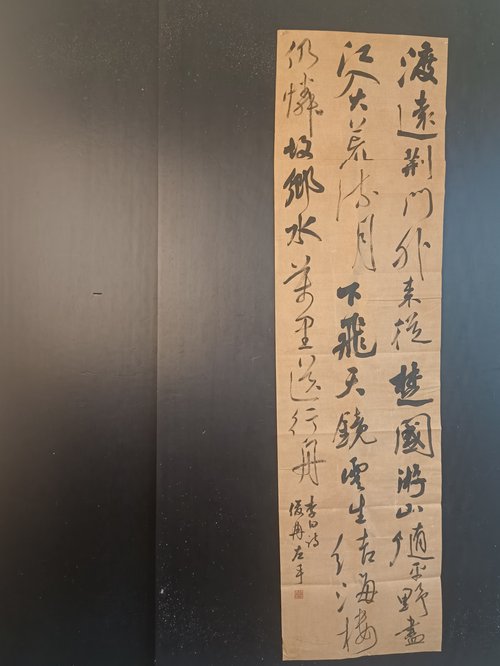 渡遠荆門外来從楚國游山随平野盡
江入大荒流月下飛天鏡雲生结海楼
仍憐故鄉水萬里送行舟
李白诗